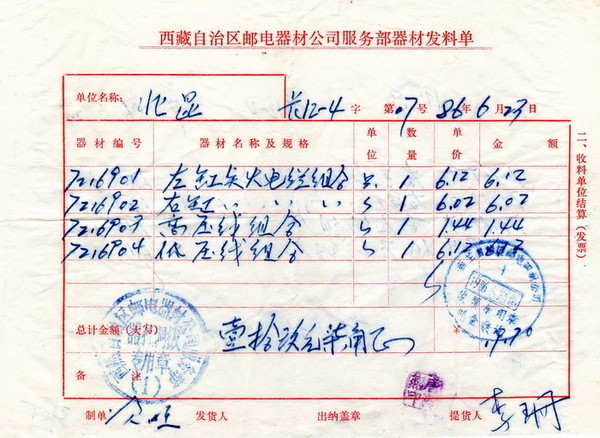 西藏自治区邮电器材公司服务部器材发料单
单位名称: 北昆 长12-4 字 第07号 86年6月23日
器材编号 器材名称及规格 单位 数量 单价 金额
7216901 左缸尖火电缆组合 1 6.12 6.12
7216902 右缸 〃 〃 〃 1 6.02 6.02
7216903 高压线组合 1 1.44 1.44
7216904 低压线组合 1 6.12
总计金额(大写) 壹拾玖元柒角正 19.70
备注
制单 发货人 出纳盖章 提货人 李珊
二、收料单位结算(发票)
西藏自治区邮电器材公司服务部
专用章
(1)